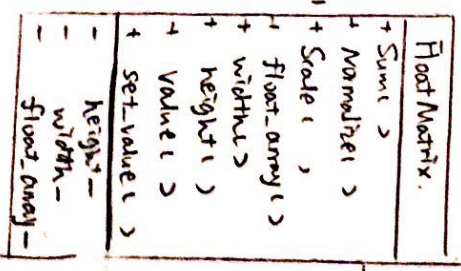 FloatMatrix.
+ Sum( )
+ Normalize( )
+ Scale( )
+ float_array( )
+ width( )
+ height( )
+ value( )
+ set_value( )
- height_
- width_
- float_array_